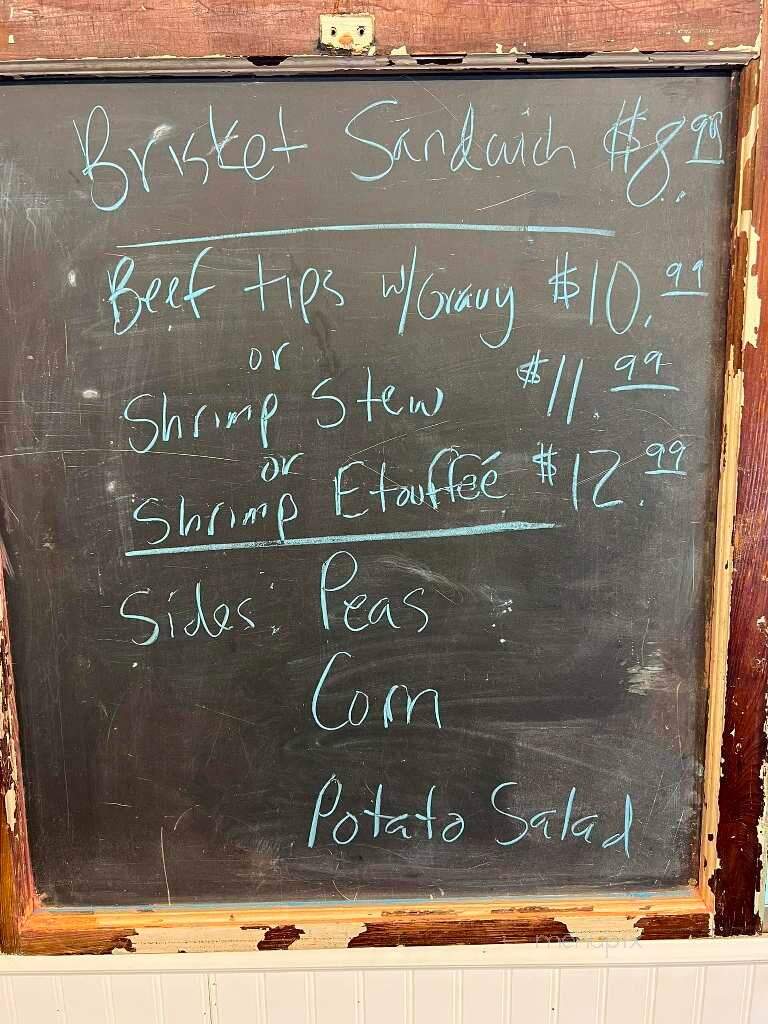 Brisket Sandwich $8.99
Beef tips w/Gravy $10.99
or
Shrimp Stew $11.99
or
Shrimp Etouffeé $12.99
Sides: Peas
Corn
Potato Salad
menupix